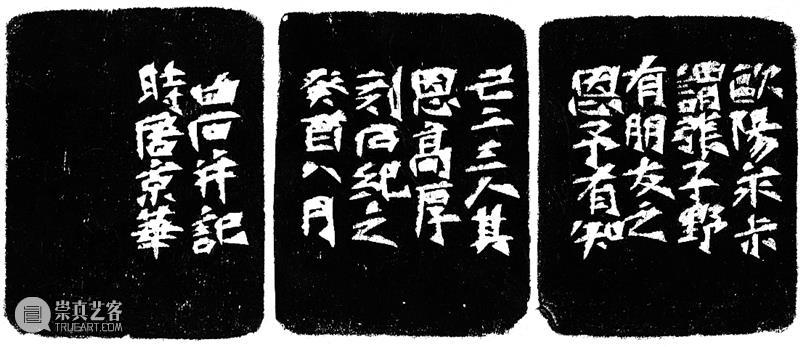 歐陽永尗
謂張子野
有朋友之
恩予有知
己二三人其
恩高厚
刻石紀之
癸酉八月
石并記
時居京華
崇真艺客
TRUEART.COM